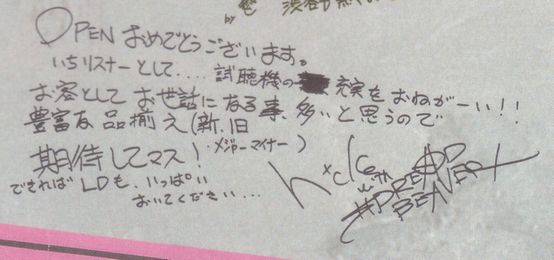 OPENおめでとうございます。
いちリスナーとして‥‥試聴機の 充実をおねがーい!!
お客として お世話になる事、多いと思うので
豊富な品揃え(新、旧
メジャーマイナー)
期待してマス!
できればLDも、いっぱい
おいてください…
with
DREAD
BEAVER